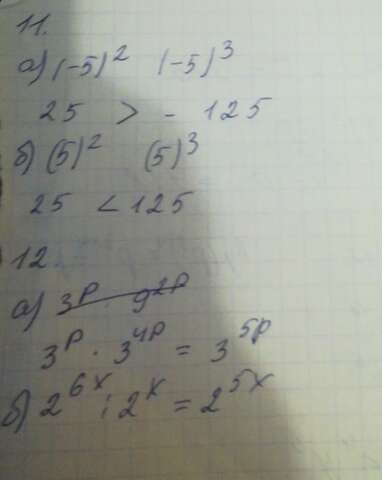 11.
а) (-5)² (-5)³
25 > - 125
б) (5)² (5)³
25 < 125
12.
а) 3ᵖ 9²ᵖ
3ᵖ · 3⁴ᵖ = 3⁵ᵖ
б) 2⁶ˣ : 2ˣ = 2⁵ˣ